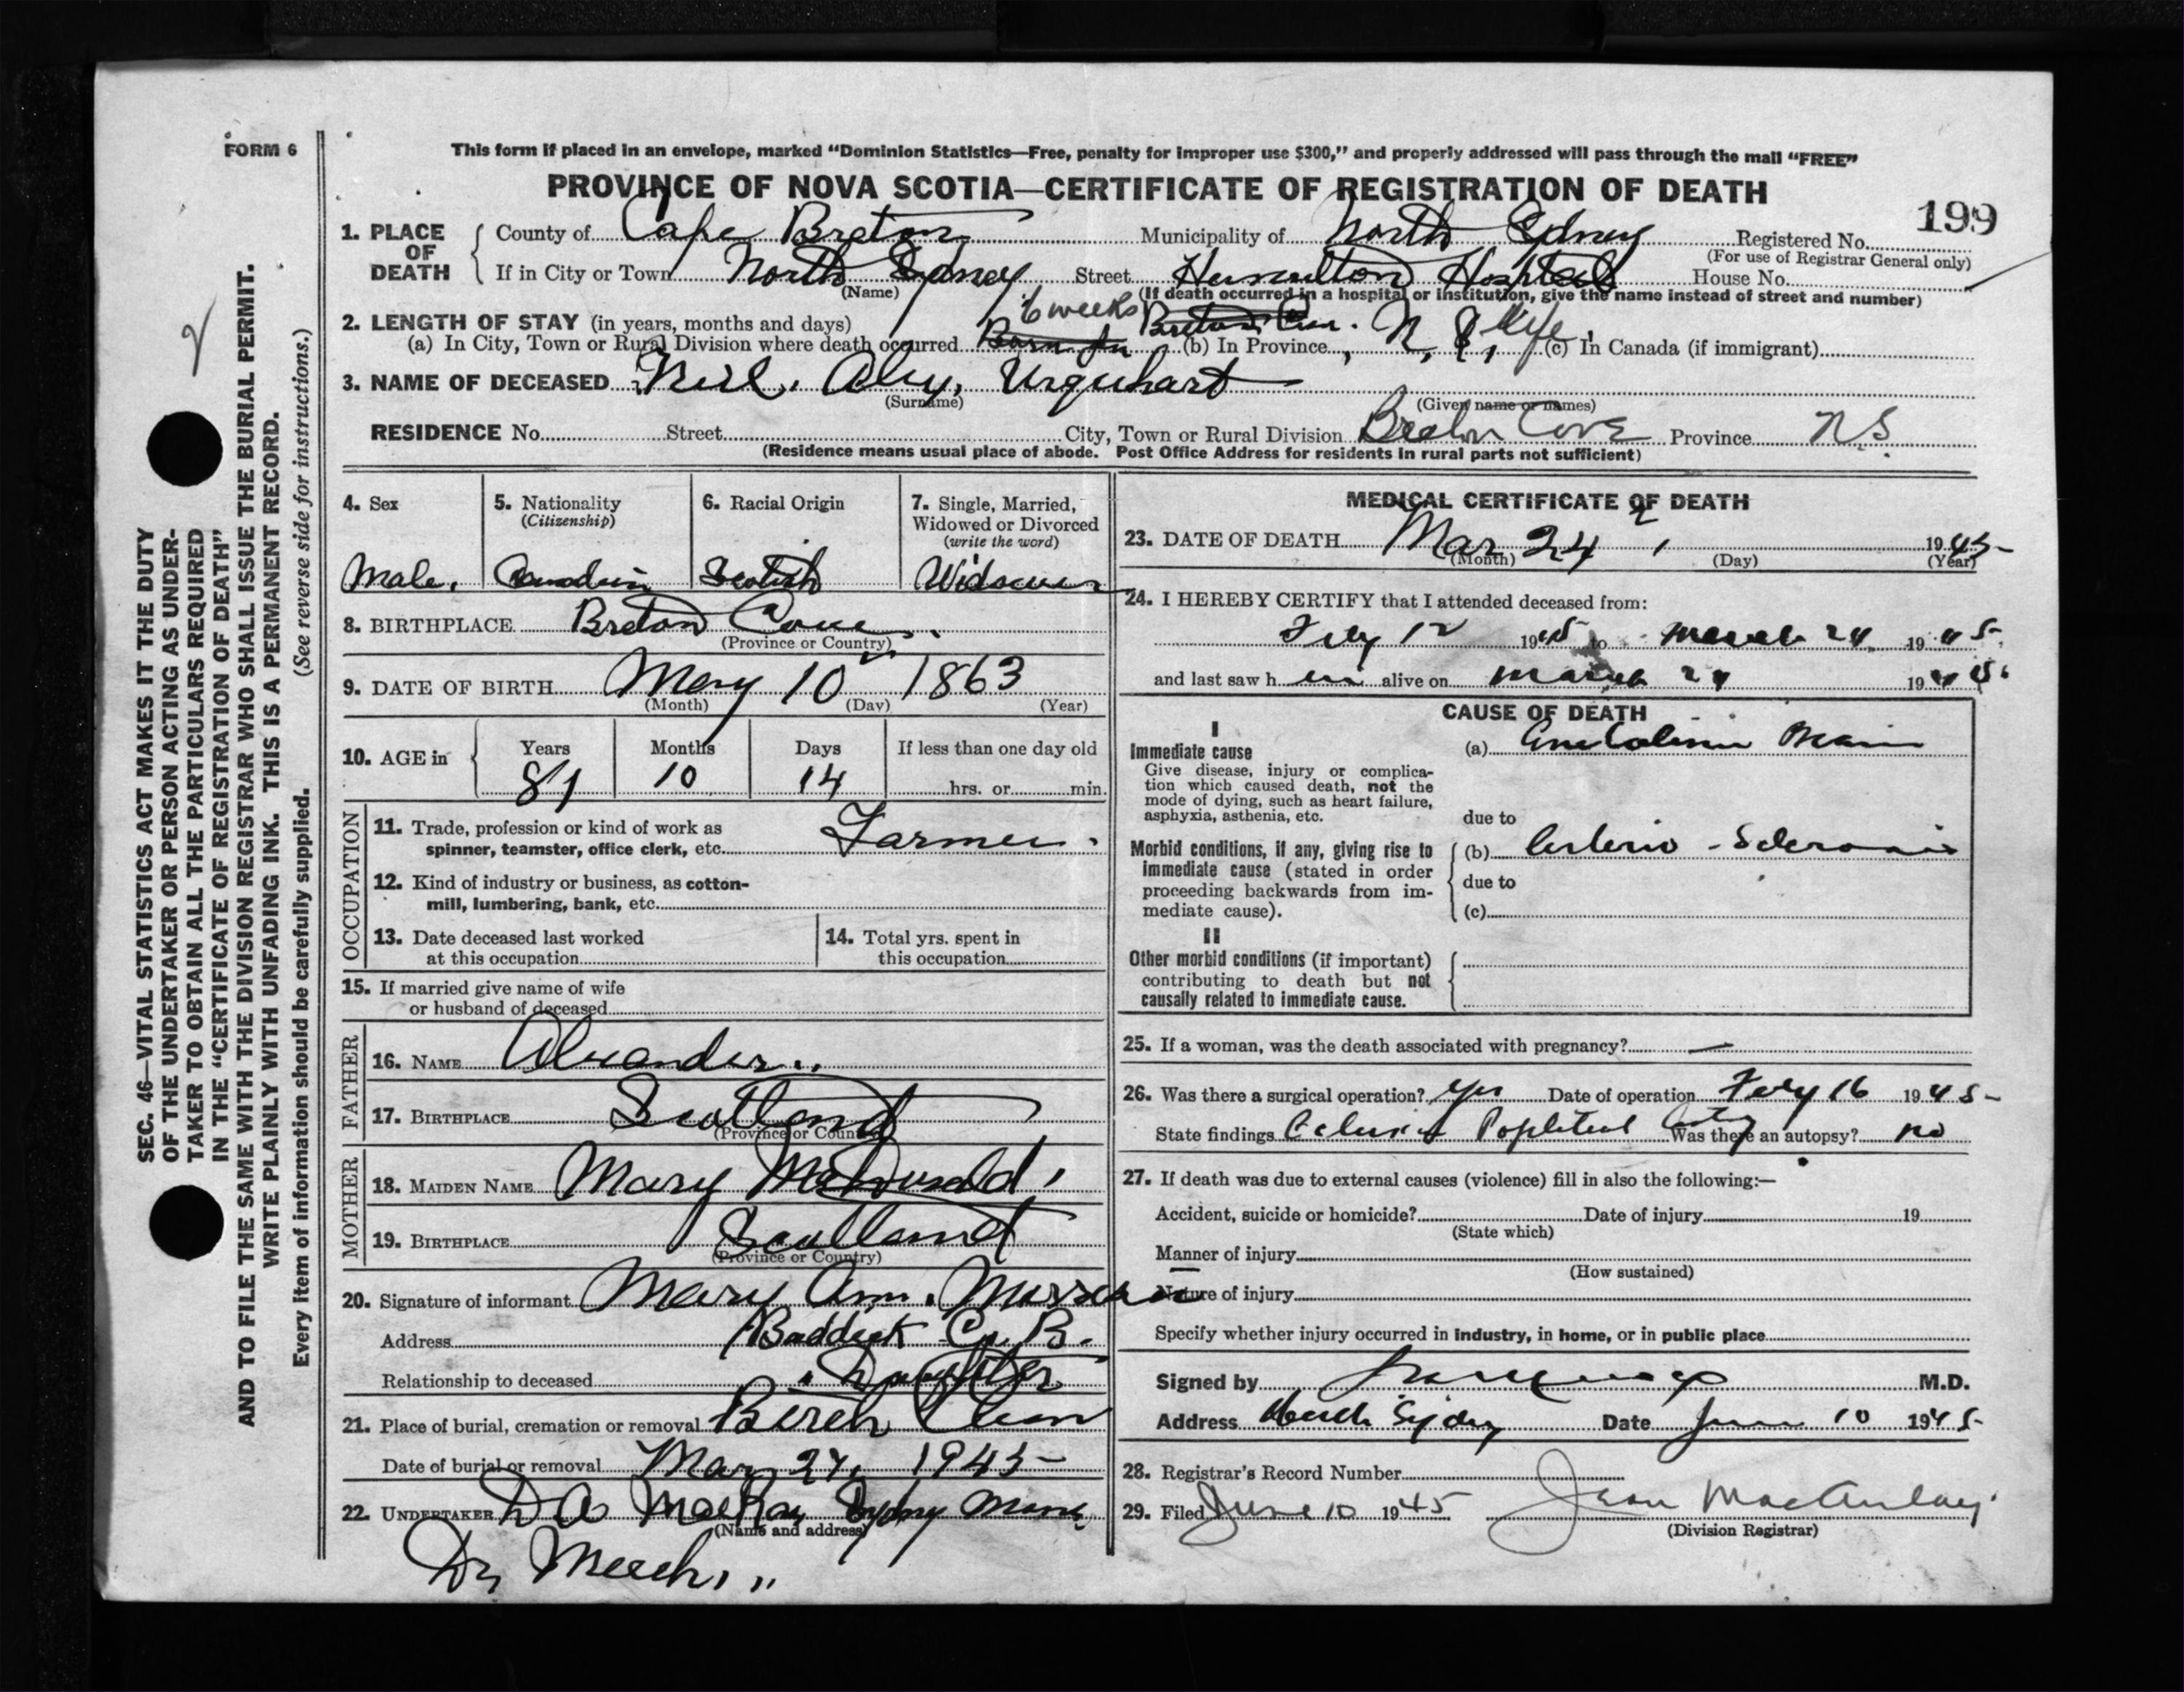 FORM 6
This form if placed in an envelope, marked “Dominion Statistics—Free, penalty for improper use $300,” and properly addressed will pass through the mail “FREE”
PROVINCE OF NOVA SCOTIA—CERTIFICATE OF REGISTRATION OF DEATH
199
1. PLACE OF DEATH { County of Cape Breton Municipality of North Sydney Registered No.
(For use of Registrar General only)
If in City or Town North Sydney Street Hamilton Hospital House No.
(Name) (If death occurred in a hospital or institution, give the name instead of street and number)
2. LENGTH OF STAY (in years, months and days) 6 weeks
(a) In City, Town or Rural Division where death occurred Born in (b) In Province Breton Cove. N. S, life, (c) In Canada (if immigrant)
3. NAME OF DECEASED Neil. Alex, Urquhart
(Surname) (Given name or names)
RESIDENCE No. Street City, Town or Rural Division Breton Cove Province NS.
(Residence means usual place of abode. Post Office Address for residents in rural parts not sufficient)
4. Sex
Male.
5. Nationality
(Citizenship)
Canadian
6. Racial Origin
Scotish
7. Single, Married,
Widowed or Divorced
(write the word)
Widower
8. BIRTHPLACE Breton Cove
(Province or Country)
9. DATE OF BIRTH May 10 1863
(Month) (Day) (Year)
10. AGE in { Years Months Days If less than one day old
81 10 14 hrs. or min.
OCCUPATION
11. Trade, profession or kind of work as
spinner, teamster, office clerk, etc. Farmer.
12. Kind of industry or business, as cotton-
mill, lumbering, bank, etc.
13. Date deceased last worked
at this occupation
14. Total yrs. spent in
this occupation
15. If married give name of wife
or husband of deceased
FATHER
16. NAME Alexander
17. BIRTHPLACE Scotland
(Province or Country)
MOTHER
18. MAIDEN NAME Mary McDonald
19. BIRTHPLACE Scotland
(Province or Country)
20. Signature of informant Mary Ann.
Address Baddeck C. B.
Relationship to deceased Daughter
21. Place of burial, cremation or removal Birch
Date of burial or removal Mar 27, 1945
22. UNDERTAKER D A MacKay Sydney Mines
(Name and address)
Dr Meech
MEDICAL CERTIFICATE OF DEATH
23. DATE OF DEATH Mar 24 1945
(Month) (Day) (Year)
24. I HEREBY CERTIFY that I attended deceased from:
Feby 12 1945 to March 24 1945
and last saw him alive on March 24 1945
CAUSE OF DEATH
I
Immediate cause (a)
Give disease, injury or complica-
tion which caused death, not the
mode of dying, such as heart failure,
asphyxia, asthenia, etc.
due to
Morbid conditions, if any, giving rise to
immediate cause (stated in order
proceeding backwards from im-
mediate cause).
(b) Arterio-Sclerosis
due to
(c)
II
Other morbid conditions (if important)
contributing to death but not
causally related to immediate cause.
25. If a woman, was the death associated with pregnancy? —
26. Was there a surgical operation? Yes Date of operation Feby 16 1945
State findings Popliteal Was there an autopsy? no
27. If death was due to external causes (violence) fill in also the following:—
Accident, suicide or homicide? Date of injury 19
(State which)
Manner of injury
(How sustained)
Nature of injury
Specify whether injury occurred in industry, in home, or in public place
Signed by M.D.
Address North Sydney Date June 10 1945
28. Registrar's Record Number
29. Filed June 10 1945 Jean MacAulay
(Division Registrar)
SEC. 46—VITAL STATISTICS ACT MAKES IT THE DUTY
OF THE UNDERTAKER OR PERSON ACTING AS UNDER-
TAKER TO OBTAIN ALL THE PARTICULARS REQUIRED
IN THE “CERTIFICATE OF REGISTRATION OF DEATH”
AND TO FILE THE SAME WITH THE DIVISION REGISTRAR WHO SHALL ISSUE THE BURIAL PERMIT.
WRITE PLAINLY WITH UNFADING INK. THIS IS A PERMANENT RECORD.
Every item of information should be carefully supplied. (See reverse side for instructions.)
2